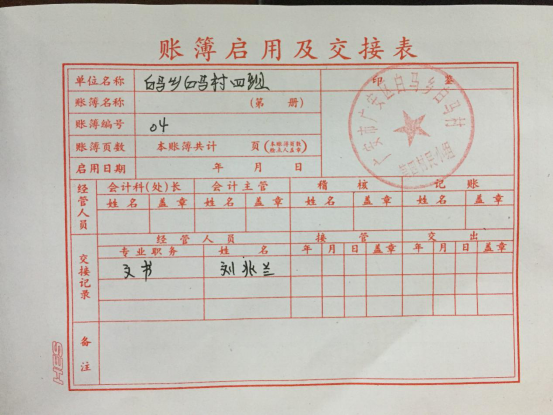 账簿启用及交接表
单位名称 白马乡白马村四组 印章
账簿名称 (第 册)
账簿编号 04
账簿页数 本账簿共计 页(本账簿页数检点人盖章)
启用日期 年 月 日
经管人员 会计科(处)长 会计主管 稽核 记账
姓名 盖章 姓名 盖章 姓名 盖章 姓名 盖章
交接记录 经管人员 接管 交出
专业职务 姓名 年 月 日 盖章 年 月 日 盖章
文书 刘兆兰
备注
广安市广安区白马乡白马村
第四村民小组
HES